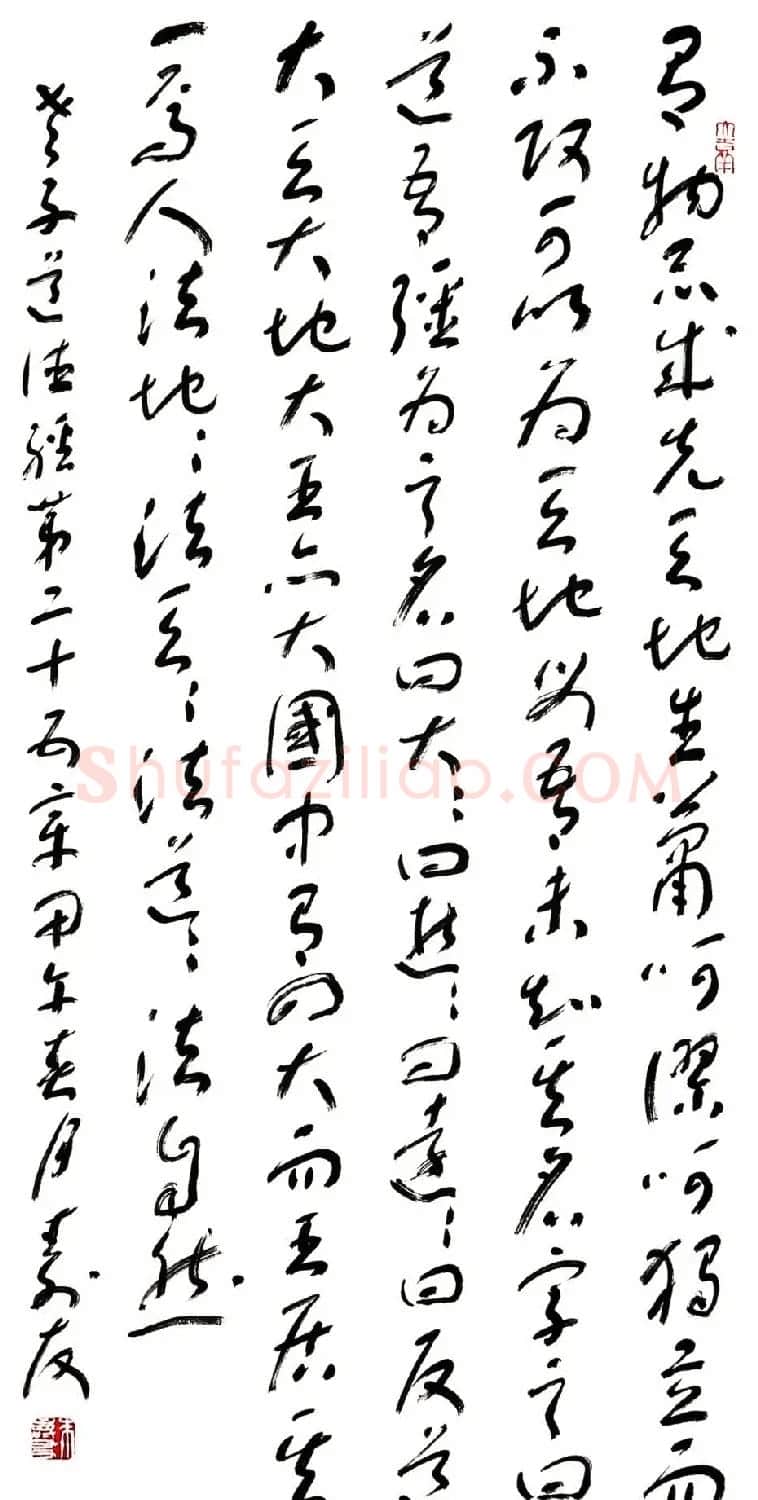 有物昆成先天地生蕭呵漻呵獨立而
不改可以為天地母吾未知其名字之曰
道吾強為之名曰大〻曰逝〻曰遠〻曰反道
大天大地大王亦大國中有四大而王居其
一焉人法地〻法天〻法道〻法自然
老子道德經第二十五章甲午春月壽友
Shufaziliao.COM